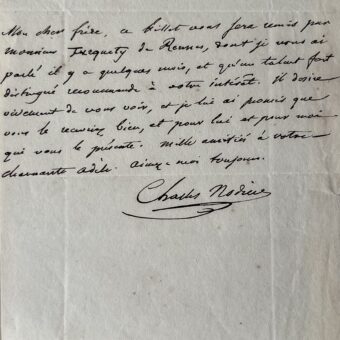 Mon cher frère, ce billet vous sera remis par
monsieur Turquety de Rennes, dont je vous ai
parlé il y a quelques mois, et qu'un talent fort
distingué recommande à votre intérêt. Il désire
vivement de vous voir, et je lui ai promis que
vous le recevriez bien, et pour lui et pour moi
qui vous le présente. Mille amitiés à votre
charmante Adèle. Aimez-moi toujours.
Charles Nodier